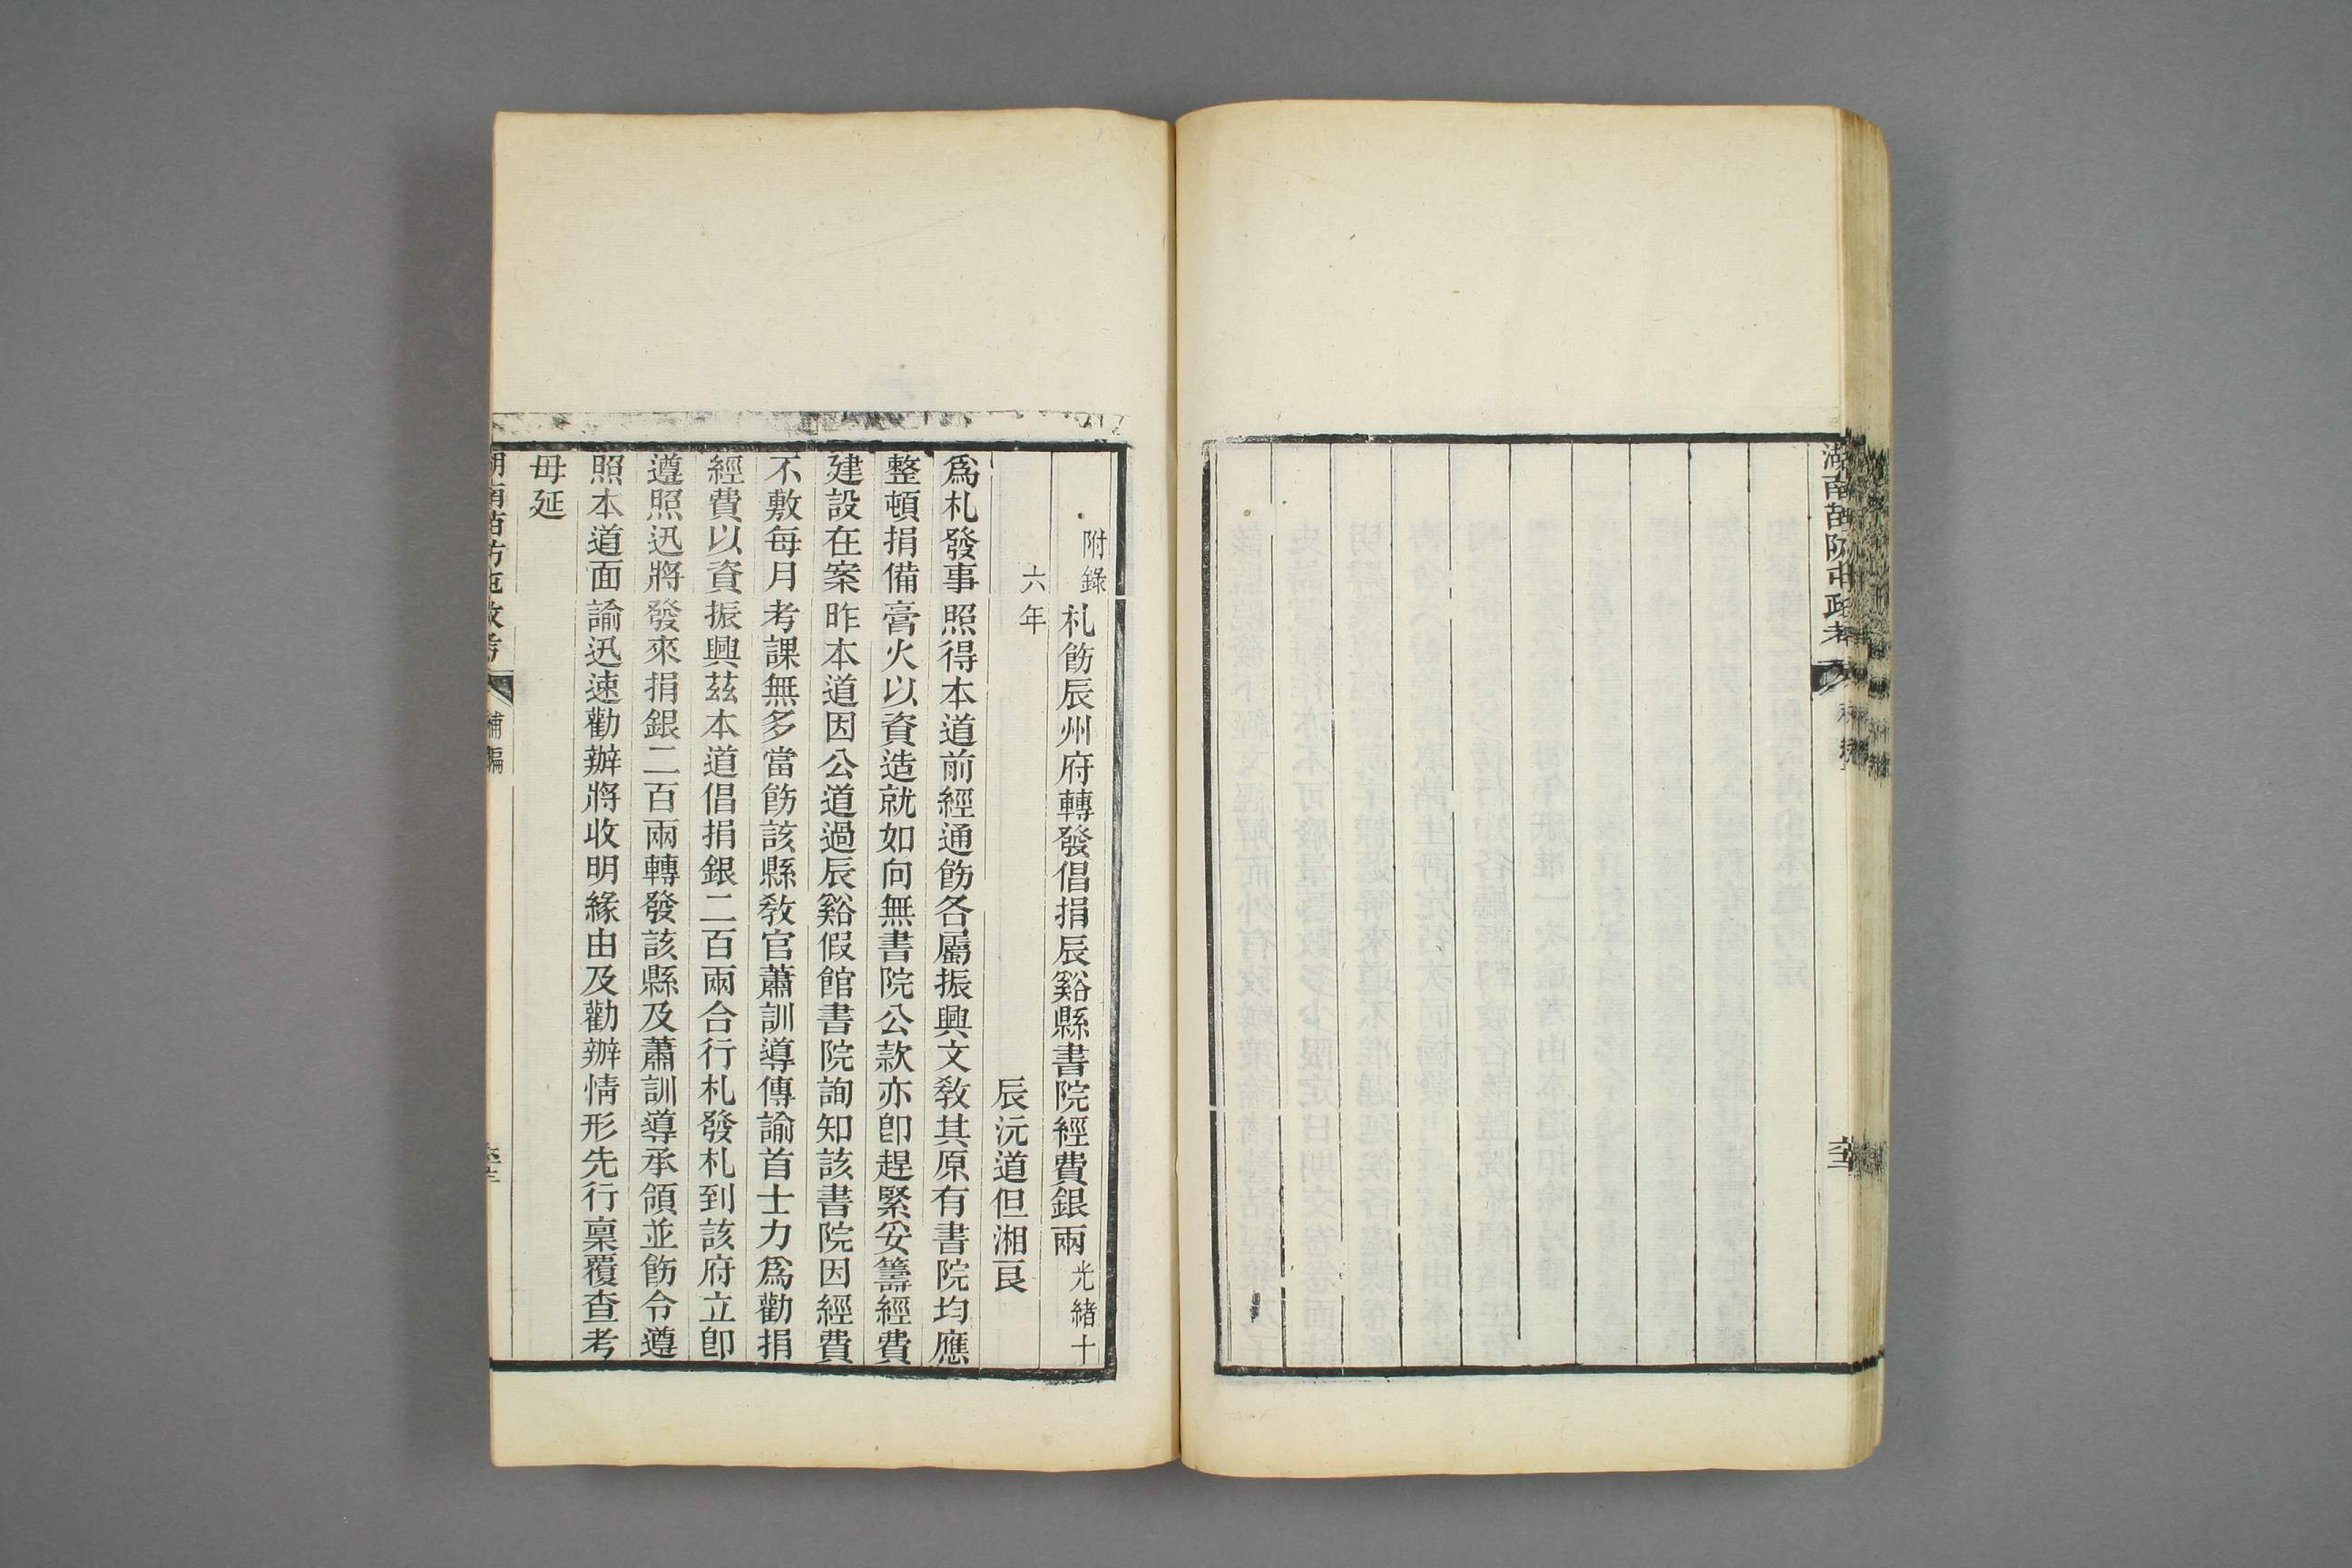 湖南苗防屯政考
附錄 札飭辰州府轉發倡捐辰谿縣書院經費銀兩 光緒十
六年 辰沅道但湘良
爲札發事照得本道前經通飭各屬振興文敎其原有書院均應
整頓捐備膏火以資造就如向無書院公款亦卽趕緊妥籌經費
建設在案昨本道因公道過辰谿假館書院詢知該書院因經費
不敷每月考課無多當飭該縣敎官蕭訓導傳諭首士力爲勸捐
經費以資振興茲本道倡捐銀二百兩合行札發札到該府立卽
遵照迅將發來捐銀二百兩轉發該縣及蕭訓導承領並飭令遵
照本道面諭迅速勸辦將收明緣由及勸辦情形先行稟覆查考
毋延
湖南苗防屯政考 補編